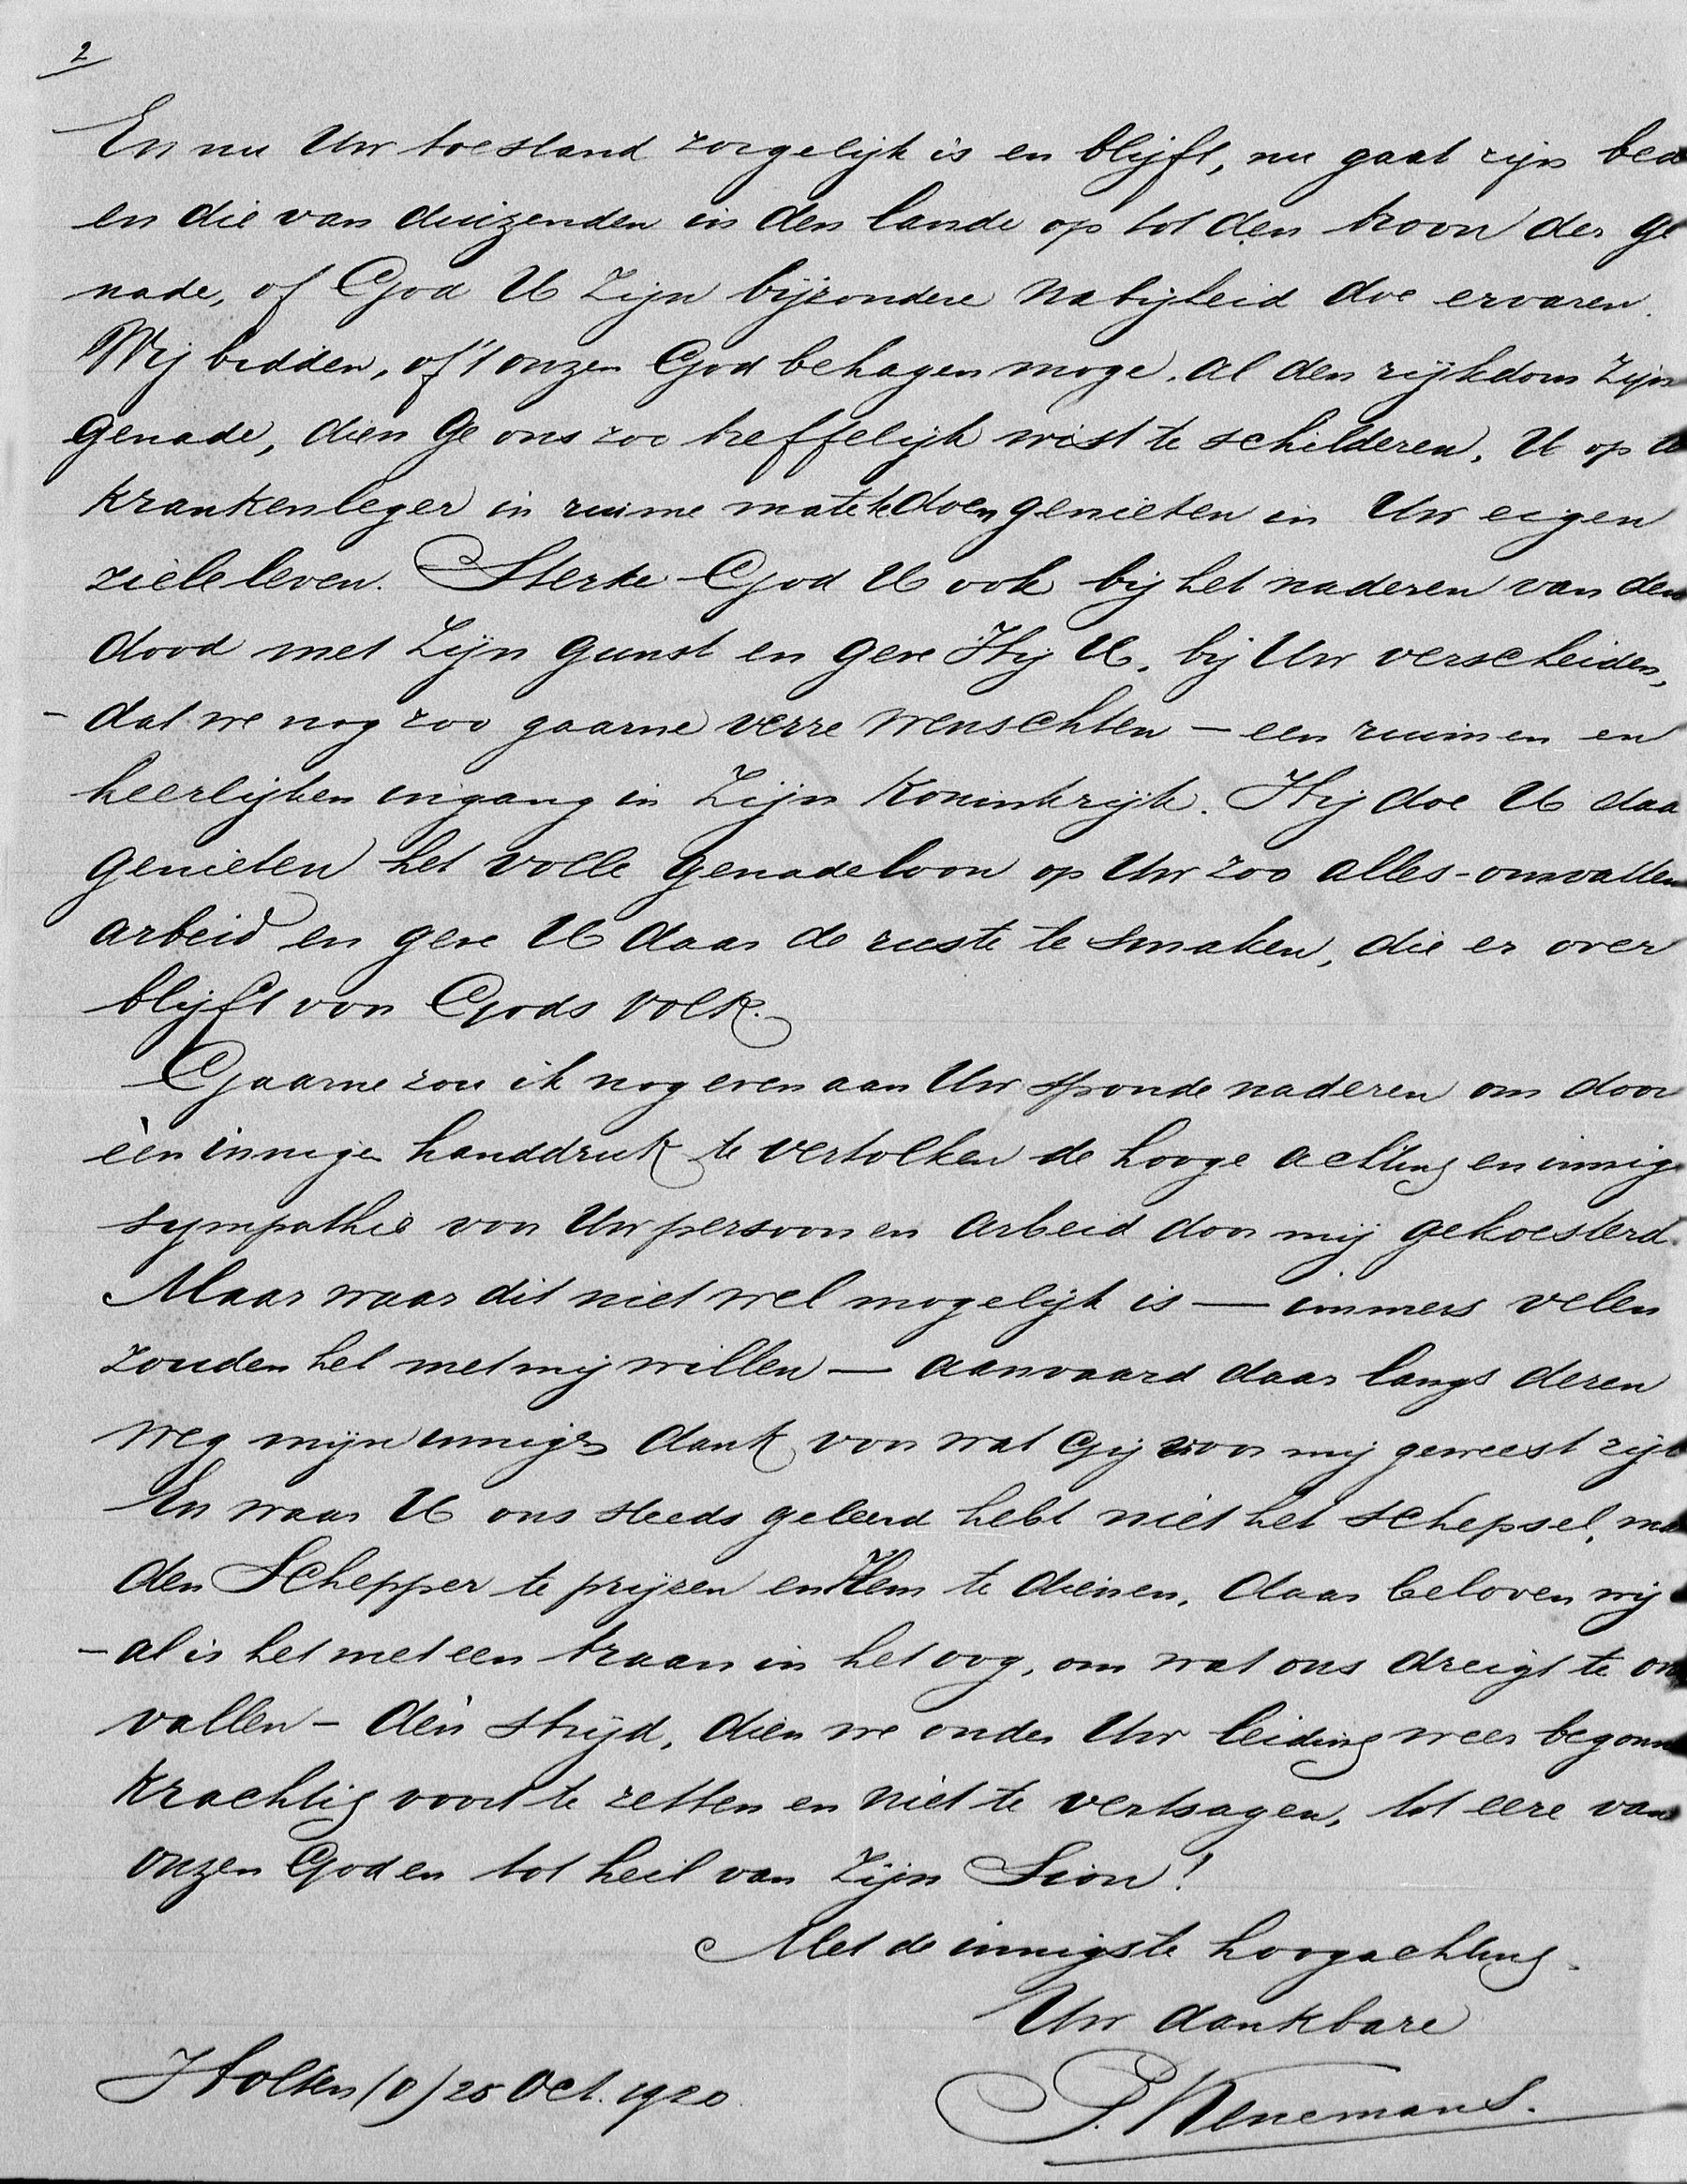 2
En nu Uw toestand zorgelijk is en blijft, nu gaat zijn bed
en die van duizenden in den lande op tot den troon der ge
nade, of God U Zijn bijzondere nabijheid doe ervaren.
Wij bidden, of 't onzen God behagen moge, al den rijkdom Zijn
genade, dien Ge ons zoo treffelijk wist te schilderen, U op U
krankenleger in ruime mate te doen genieten in Uw eigen
zieleleven. Sterke God U ook bij het naderen van den
dood met Zijn gunst en geve Hij U, bij Uw verscheiden,
- dat we nog zoo gaarne verre wenschten - een ruimen en
heerlijken ingang in Zijn Koninkrijk. Hij doe U daa
genieten het volle genadeloon op Uw zoo alles-omvatten
arbeid en geve U daar de ruste te smaken, die er over
blijft voor Gods volk.
Gaarne zou ik nog even aan Uw sponde naderen om door
één innigen handdruk te vertolken de hooge achting en innige
sympathie voor Uw persoon en arbeid door mij gekoesterd.
Maar waar dit niet wel mogelijk is — immers velen
zouden het met mij willen — aanvaard daar langs dezen
weg mijn innigen dank voor wat Gij voor mij geweest zijt
En waar U ons steeds geleerd hebt niet het schepsel, ma
den Schepper te prijzen en Hem te dienen, daar beloven wij
- al is het met een traan in het oog, om wat ons dreigt te on
vallen - dén strijd, dien we onder Uw leiding weer begonn
krachtig voort te zetten en niet te vertsagen, tot eere van
onzen God en tot heil van Zijn Sion!
Met de innigste hoogachting.
Uw dankbare
P. Wenemans.
Holten (O) 25 Oct. 1920.